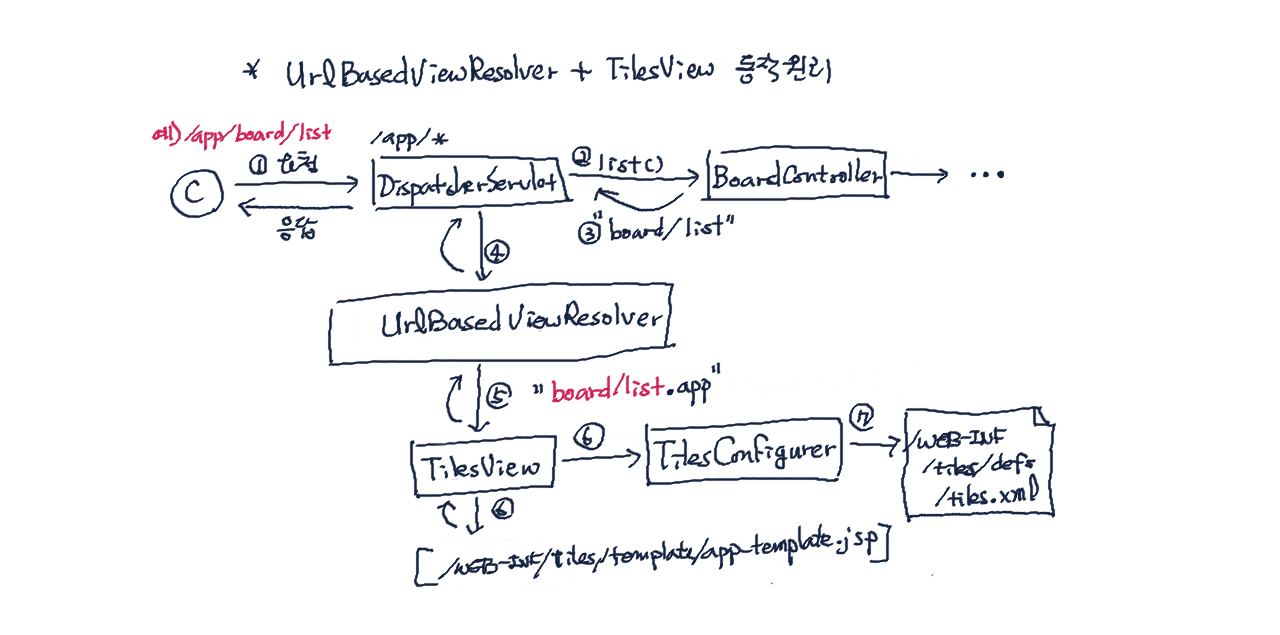 * UrlBasedViewResolver + TilesView 동작원리
예) /app/board/list
① 요청
응답
/app/*
DispatcherServlet
② list()
BoardController
...
③ "board/list"
④
UrlBasedViewResolver
⑤ "board/list.app"
TilesView
⑥
TilesConfigurer
⑦
/WEB-INF
/tiles/defs
/tiles.xml
⑥
[/WEB-INF/tiles/template/app-template.jsp]